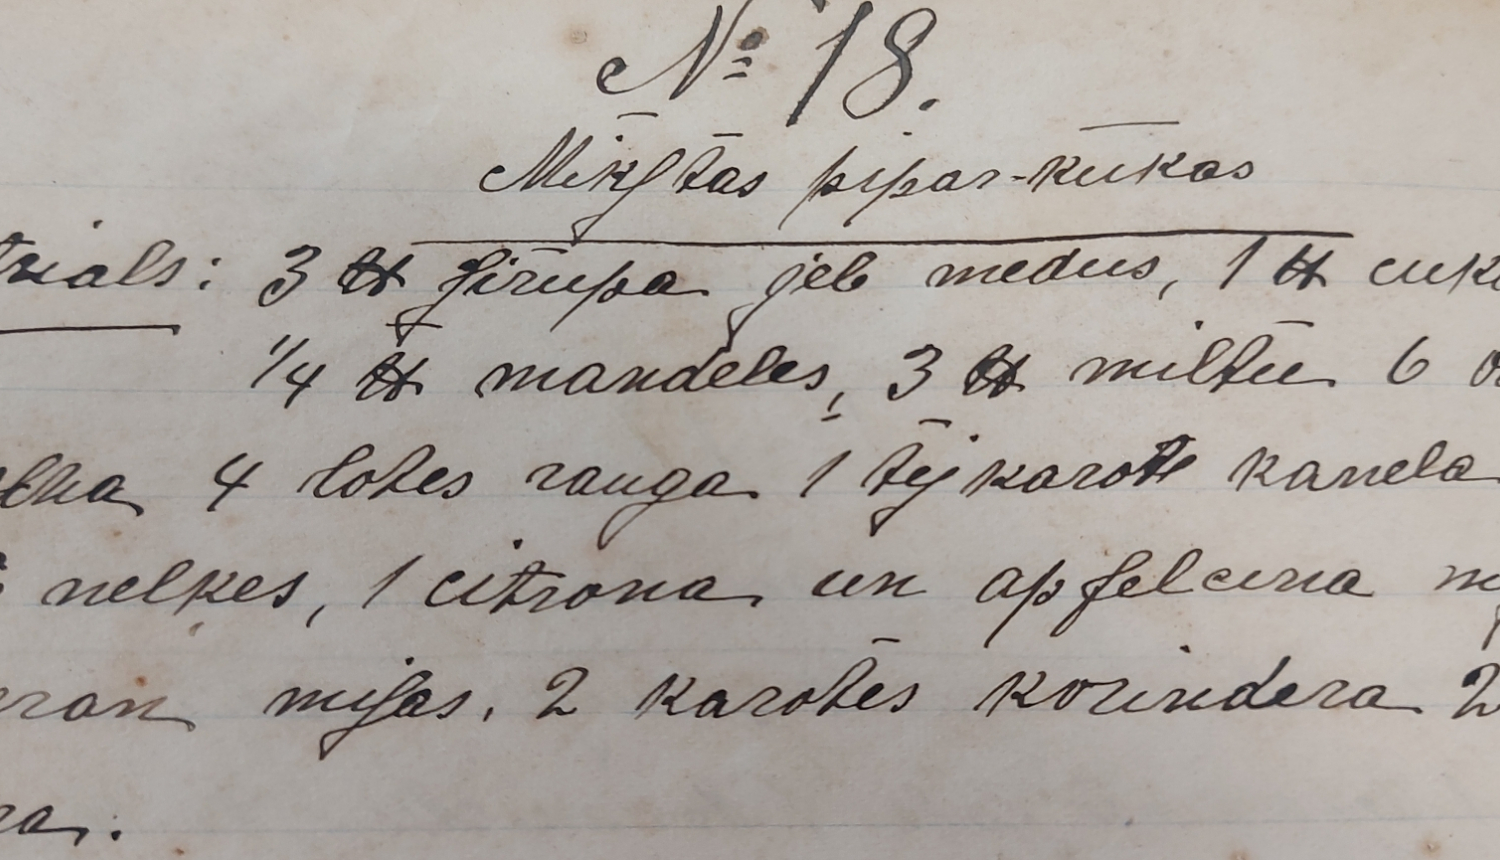 № 18.
Mīkſtās pipar-kūkas
rials: 3 ℔ ſīrupa jeb medus, 1 ℔ cuk
1/4 ℔ mandeles, 3 ℔ miltū 6
4 lotes rauga 1 tējkarote kanela
nelkes, 1 citrona un apfelcina
miſas, 2 karotēs korindera 2
ra.